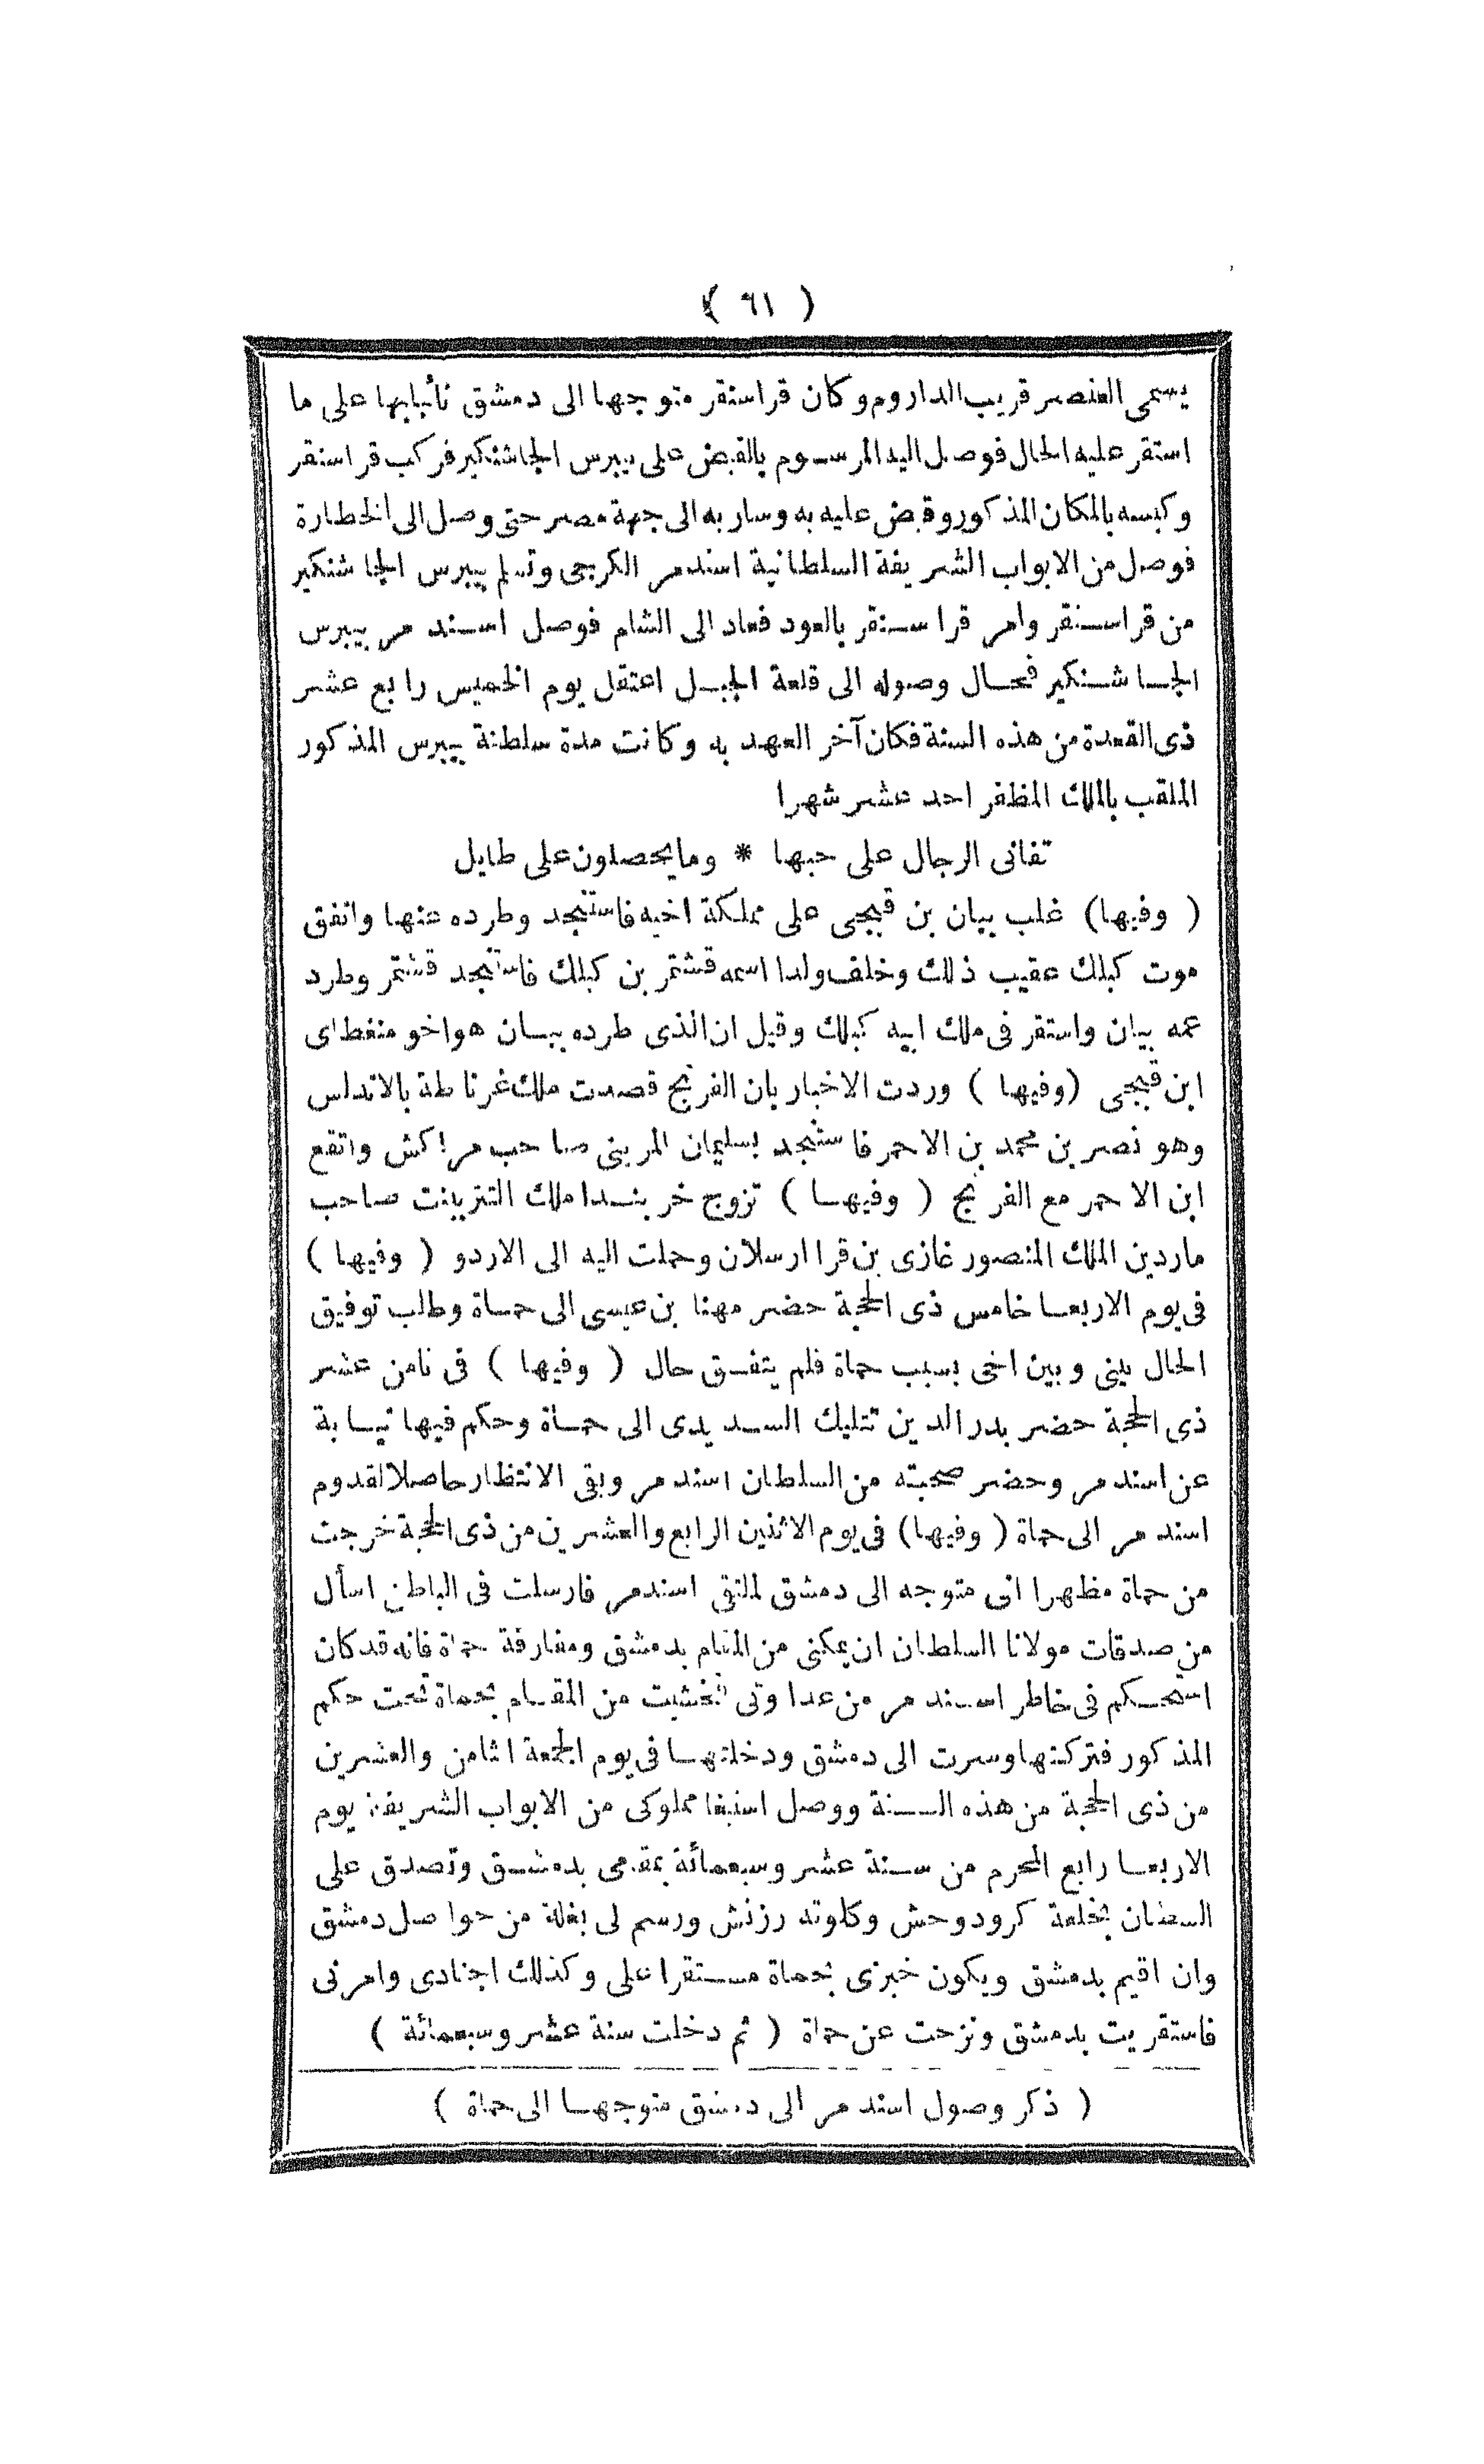 ( ٦١ )
يسمى العنصر قريب الداروم وكان قراسنقر متوجها الى دمشق نائبا بها على ما
استقر عليه الحال فوصل اليه المرسوم بالقبض على بيبرس الجاشنكير فركب قراسنقر
وكبسه بالمكان المذكور وقبض عليه به وسار به الى جهة مصر حتى وصل الى الخطارة
فوصل من الابواب الشريفة السلطانية اسندمر الكرجى وتسلم بيبرس الجاشنكير
من قراسنقر وامر قراسنقر بالعود فعاد الى الشام فوصل اسندمر ببيبرس
الجاشنكير فحال وصوله الى قلعة الجبل اعتقل يوم الخميس رابع عشر
ذى القعدة من هذه السنة فكان آخر العهد به وكانت مدة سلطنة بيبرس المذكور
الملقب بالملك المظفر احد عشر شهرا
تفانى الرجال على حبها * وما يحصلون على طايل
( وفيها) غلب بيان بن قبجى على مملكة اخيه فاستنجد وطرده عنها واتفق
موت كبلك عقيب ذلك وخلف ولدا اسمه قشتمر بن كبلك فاستنجد قشتمر وطرد
عمه بيان واستقر فى ملك ابيه كبلك وقيل ان الذى طرده بيان هو اخو منغطاى
ابن قبجى (وفيها ) وردت الاخبار بان الفرنج قصدت ملك غرناطة بالاندلس
وهو نصر بن محمد بن الاحمر فاستنجد بسليمان المرينى صاحب مراكش واتقع
ابن الاحمر مع الفرنج ( وفيها ) تزوج خربندا ملك التتر ببنت صاحب
ماردين الملك المنصور غازى بن قرا ارسلان وحملت اليه الى الاردو ( وفيها )
فى يوم الاربعا خامس ذى الحجة حضر مهنا بن عيسى الى حماة وطلب توفيق
الحال بينى وبين اخى بسبب حماة فلم يتفق حال ( وفيها ) فى ثامن عشر
ذى الحجة حضر بدر الدين تتليك السديدى الى حماة وحكم فيها نيابة
عن اسندمر وحضر صحبته من السلطان اسندمر وبقى الانتظار حاصلا لقدوم
اسندمر الى حماة ( وفيها) فى يوم الاثنين الرابع والعشرين من ذى الحجة خرجت
من حماة مظهرا انى متوجه الى دمشق لملتقى اسندمر فارسلت فى الباطن اسأل
من صدقات مولانا السلطان ان يمكنى من المقام بدمشق ومفارقة حماة فانه قد كان
استحكم فى خاطر اسندمر من عداوتى فخشيت من المقام بحماة تحت حكم
المذكور فتركتها وسرت الى دمشق ودخلتها فى يوم الجمعة الثامن والعشرين
من ذى الحجة من هذه السنة ووصل اسنبغا مملوكى من الابواب الشريفة يوم
الاربعا رابع المحرم من سنة عشر وسبعمائة بمقامى بدمشق وتصدق على
السلطان بخلعة كرودوحش وكلوته رزنش ورسم لى بغلة من حواصل دمشق
وان اقيم بدمشق ويكون خبزى بحماة مستقرا على وكذلك اجنادى وامرنى
فاستقريت بدمشق ونزحت عن حماة ( ثم دخلت سنة عشر وسبعمائة )
( ذكر وصول اسندمر الى دمشق متوجها الى حماة )